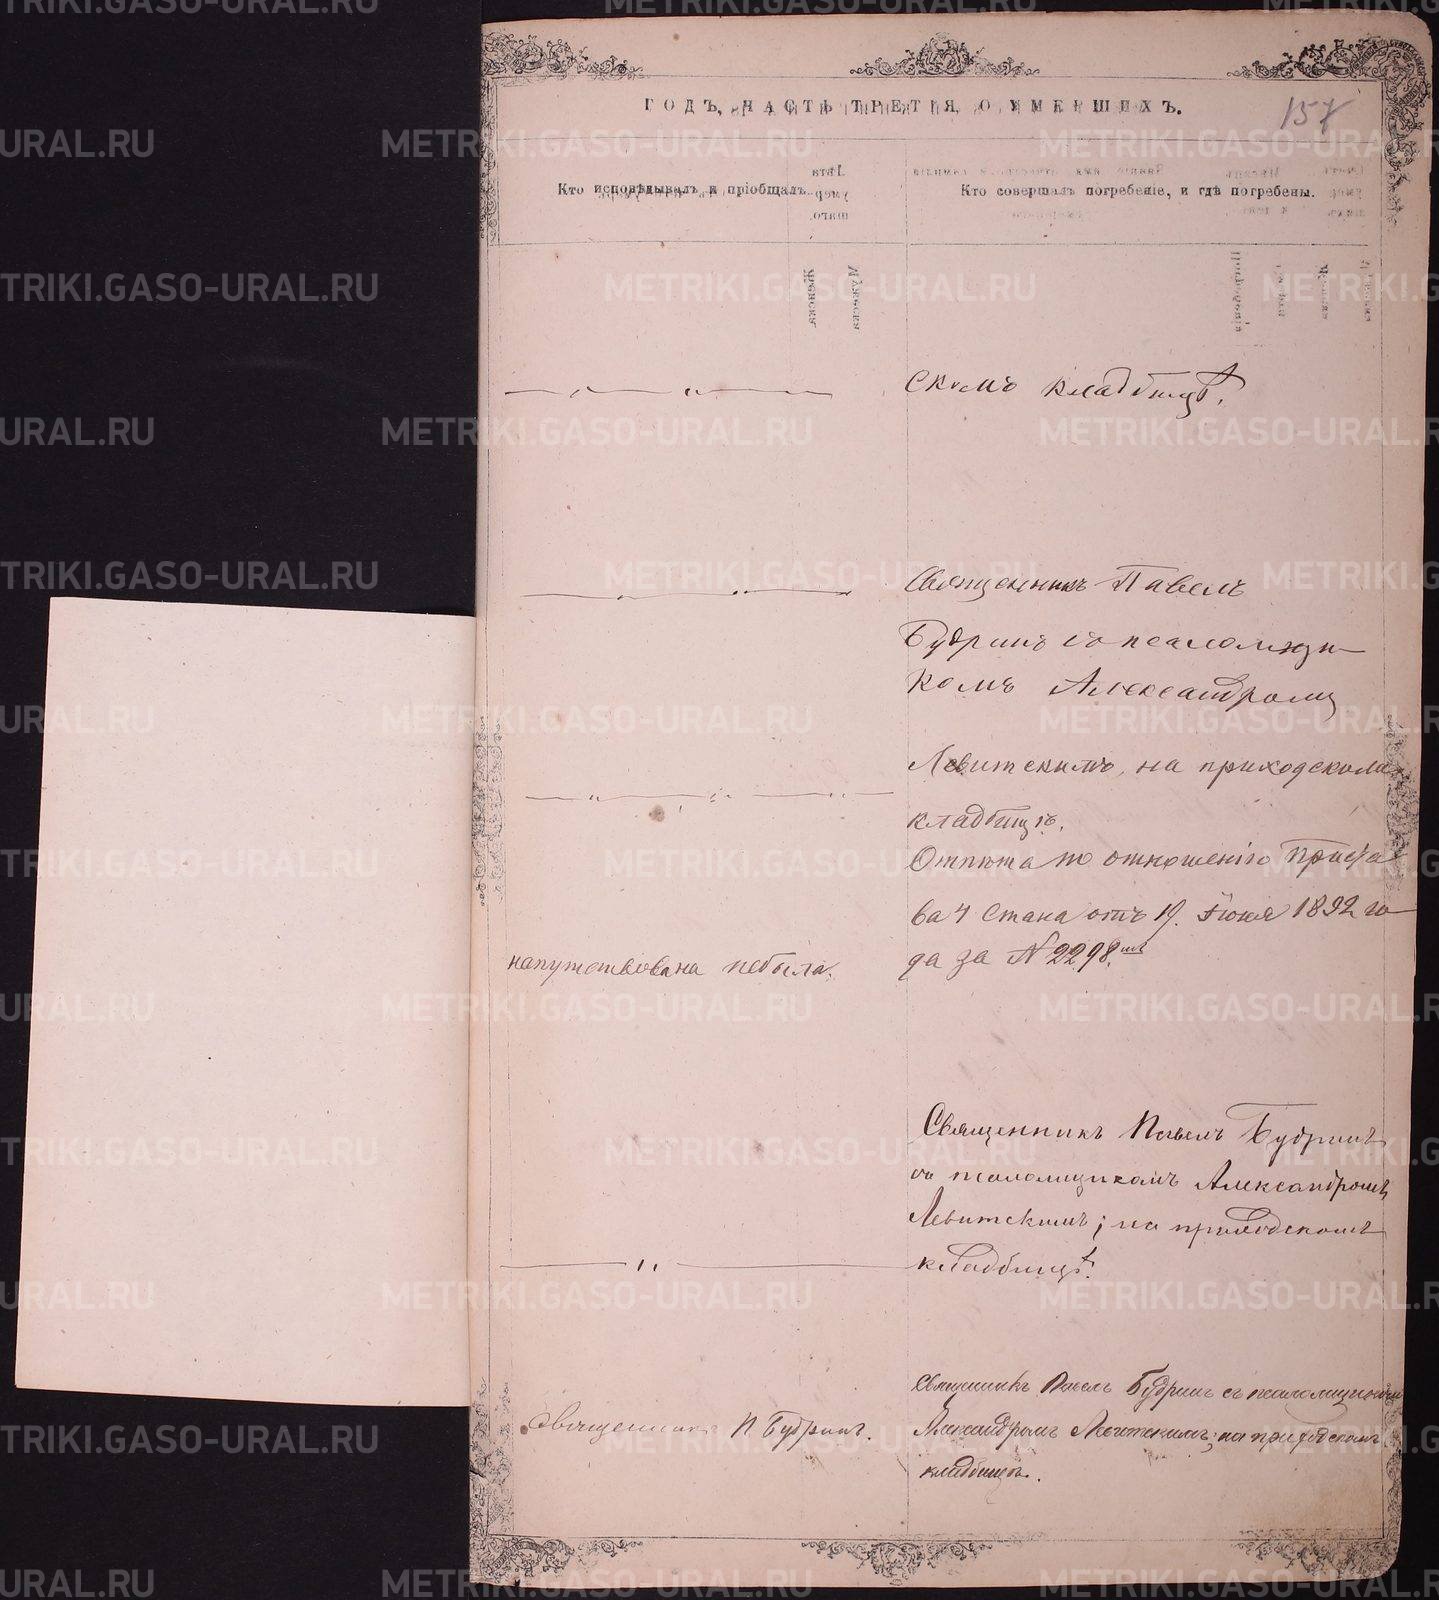 ГОДЪ, ЧАСТЬ ТРЕТІЯ, О УМЕРШИХЪ.
157
Кто исповѣдывалъ и пріобщалъ.
Кто совершалъ погребеніе, и гдѣ погребены.
скомъ кладбищѣ.
Священникъ Павелъ
Будринъ съ псаломщи-
комъ Александромъ
Левитскимъ, на приходскомъ
кладбищѣ.
Отпѣта по отношенію Приста
ва 4 Стана отъ 19. Іюня 1892 го
да за № 2298.
напутствована небыла.
Священникъ Павелъ Будринъ
съ псаломщикомъ Александромъ
Левитскимъ; на приходскомъ
кладбищѣ.
Священникъ П Будринъ.
Священникъ Павелъ Будринъ съ псаломщикомъ
Александромъ Левитскимъ; на приходскомъ
кладбищѣ.
METRIKI.GASO-URAL.RU